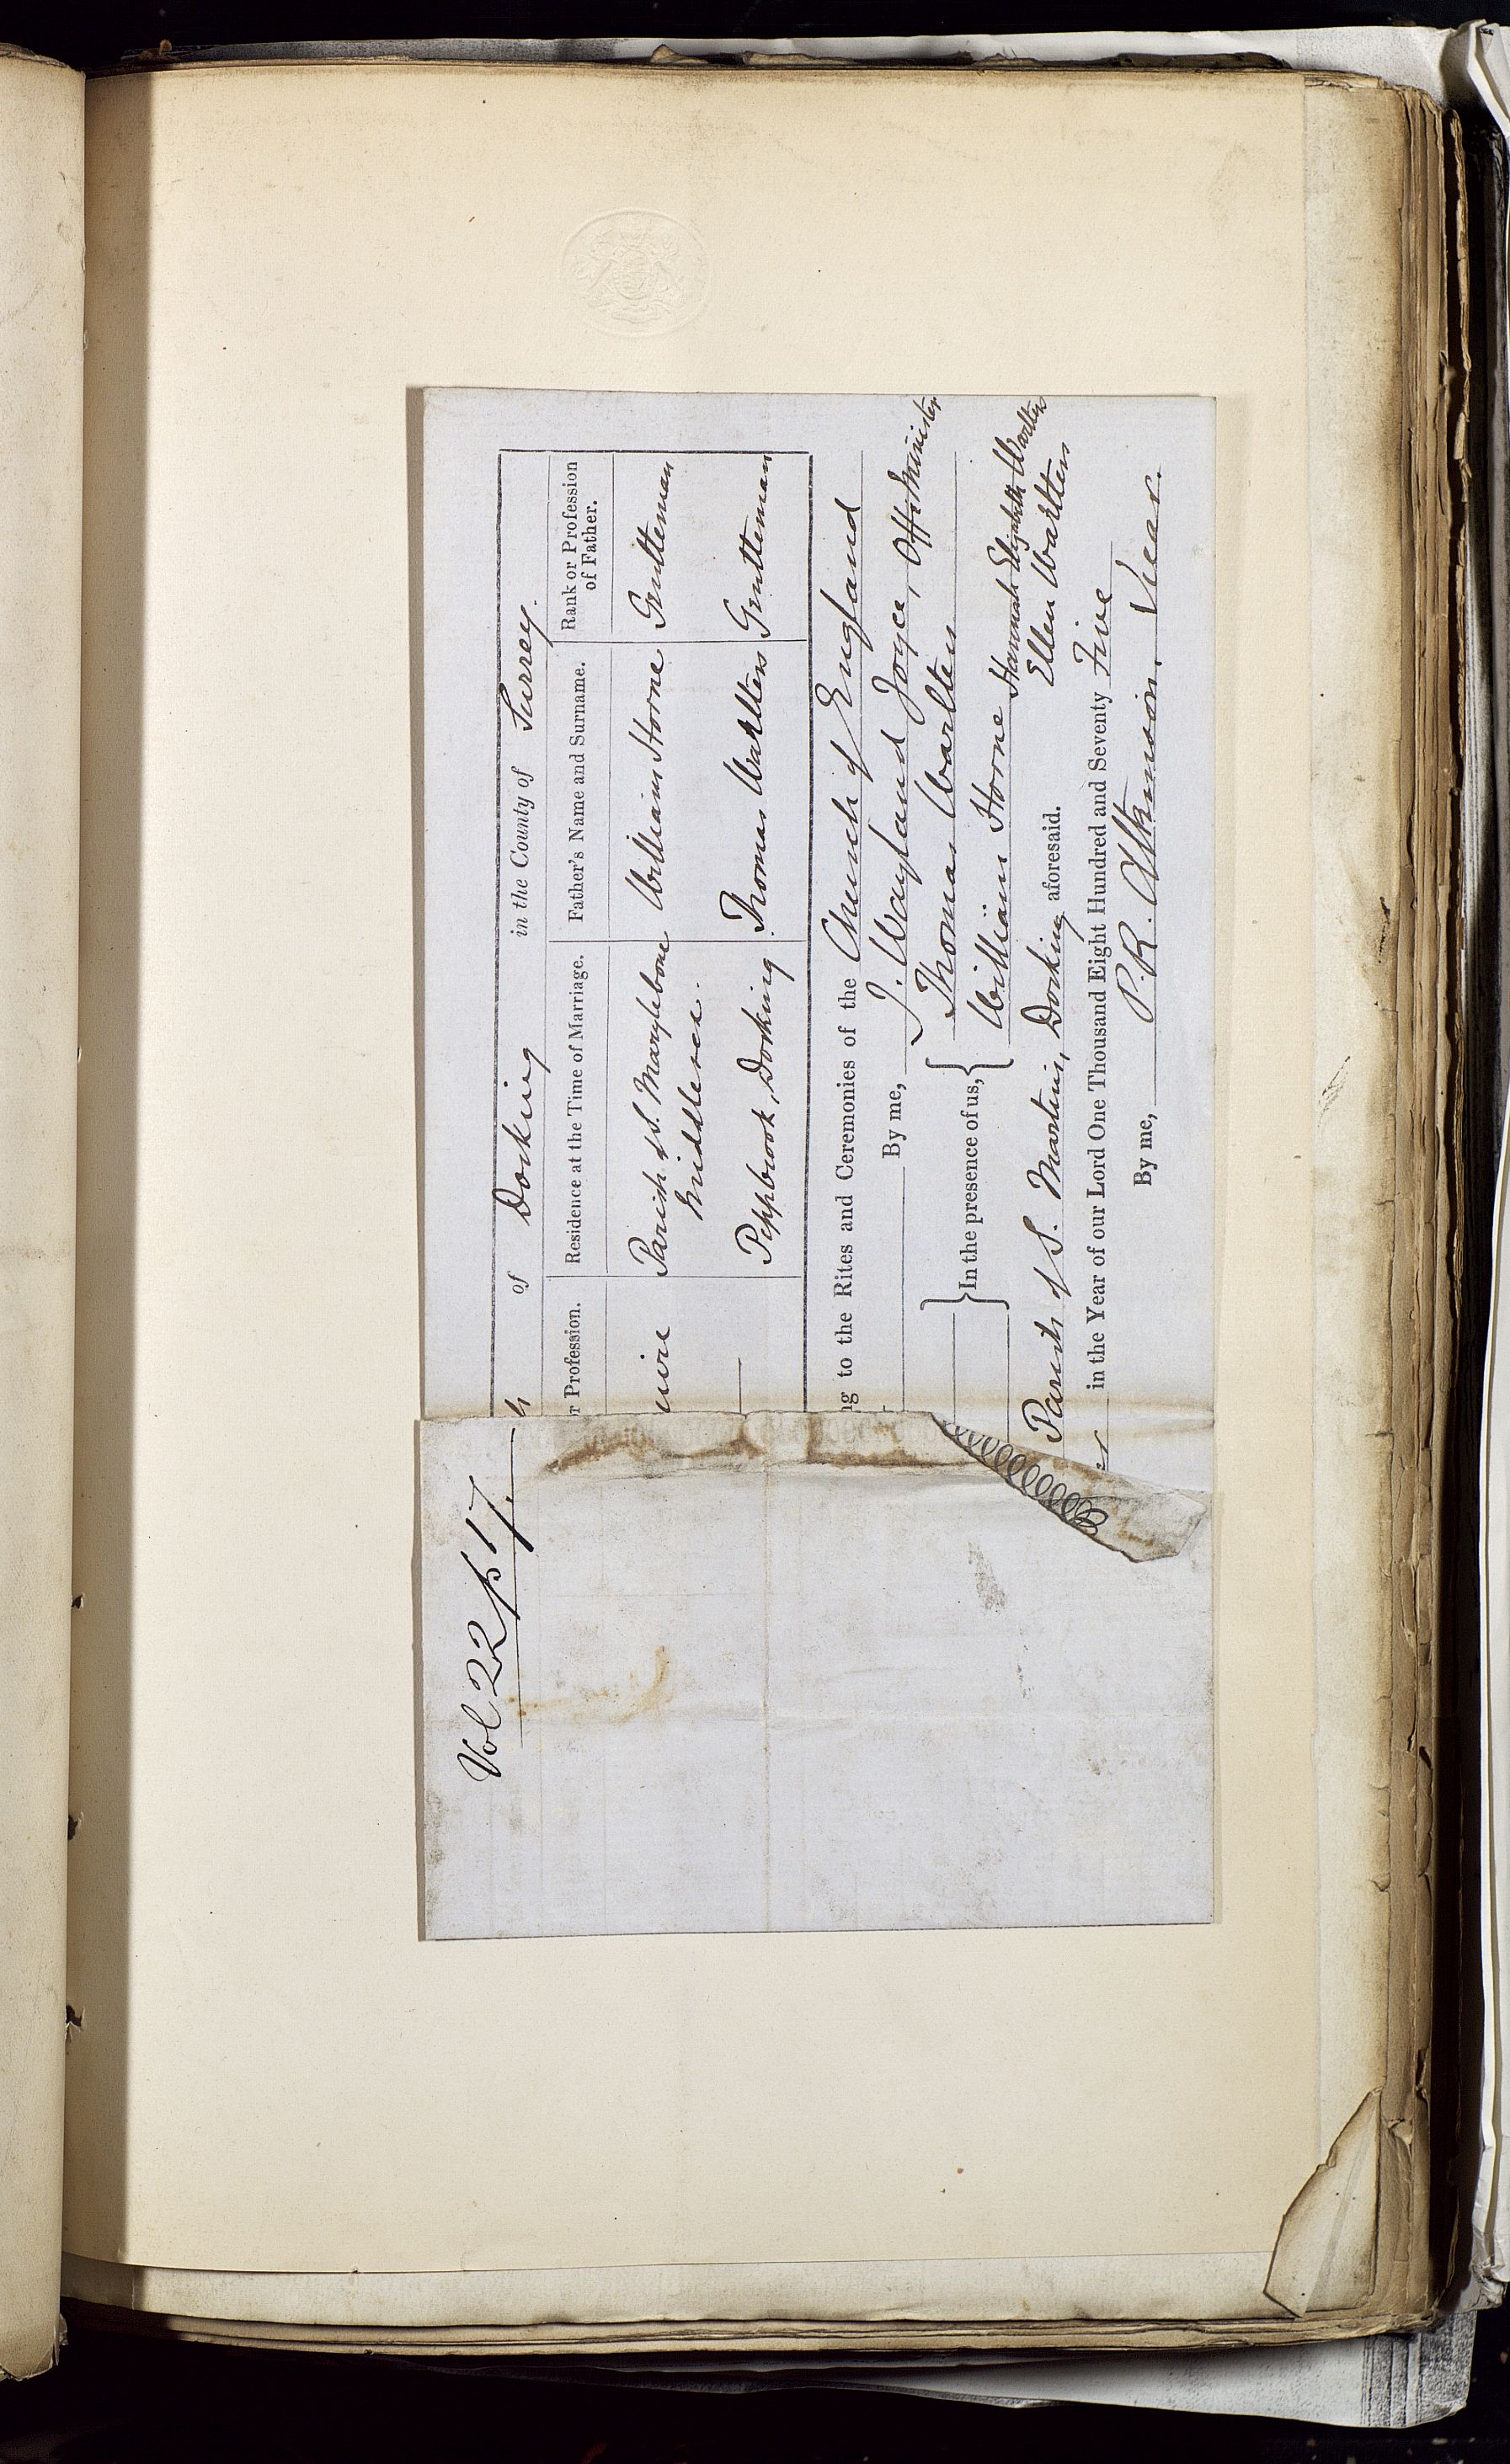 Vol 22 p 17.
h of Dorking in the County of Surrey.
r Profession. Residence at the Time of Marriage. Father's Name and Surname. Rank or Profession
of Father.
uire Parish of S. Marylebone William Horne Gentleman
Middlesex.
— Pippbrook, Dorking Thomas Walters Gentleman
ng to the Rites and Ceremonies of the Church of England
By me, J. Wayland Joyce, Offg Minister
In the presence of us, Thomas Walters
William Horne Hannah Elizabeth Walters
Ellen Walters
Parish of S. Martins, Dorking aforesaid.
er in the Year of our Lord One Thousand Eight Hundred and Seventy Five
By me, P. R. Atkinson, Vicar.